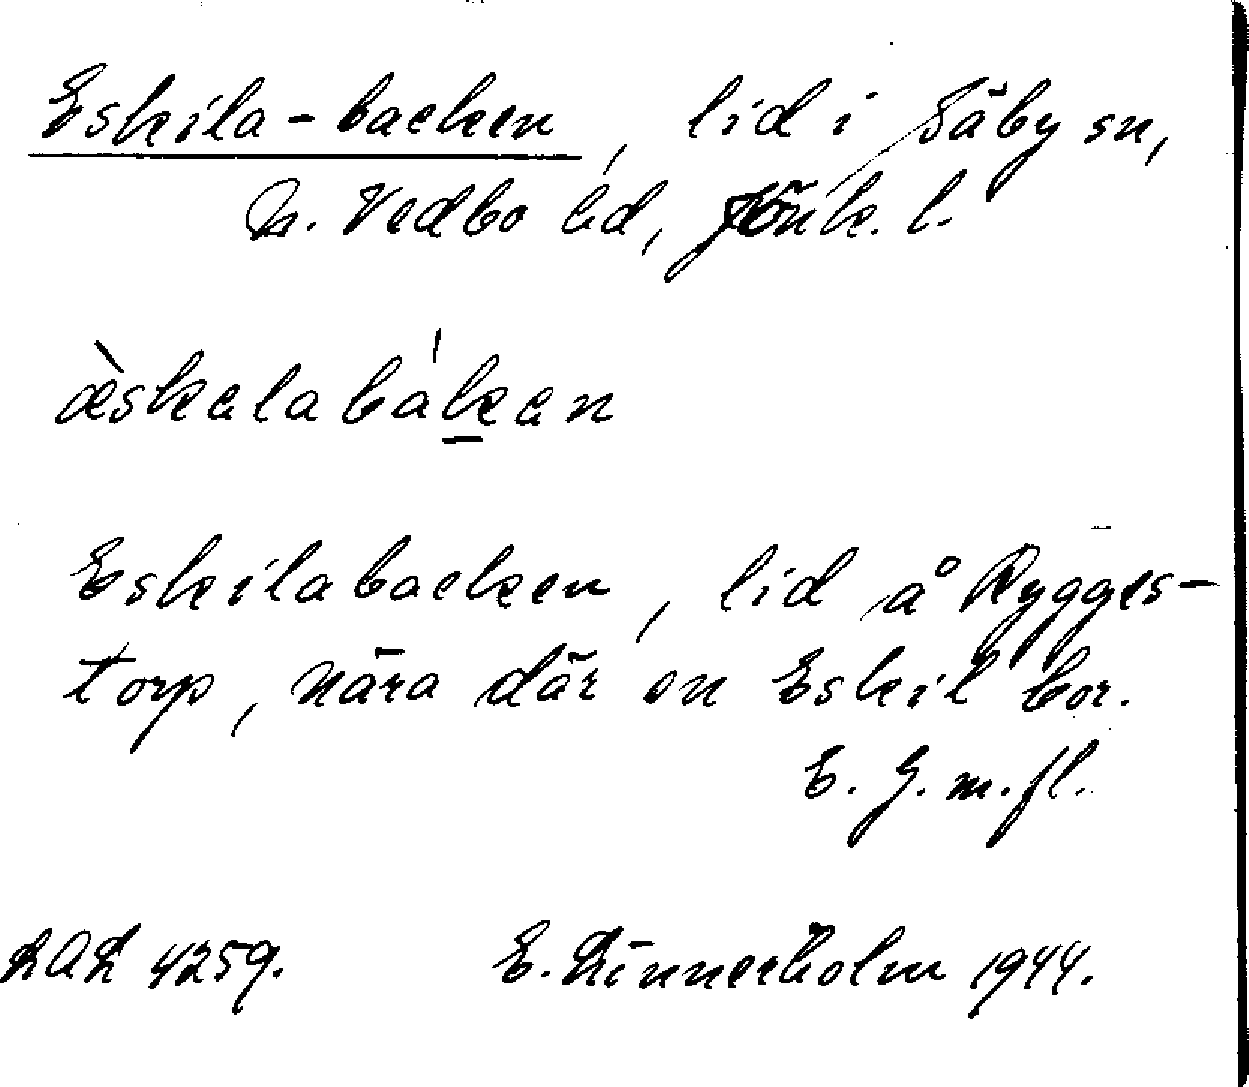 Eskila-backen, lid i Säby sn,
N. Vedbo hd, Jönk. l.
æ̀skelabáken
Eskilabacken, lid å Rygges-
torp, nära där en Eskil bor.
E. G. m. fl.
LAL 4259. E. Linnerholm 1944.